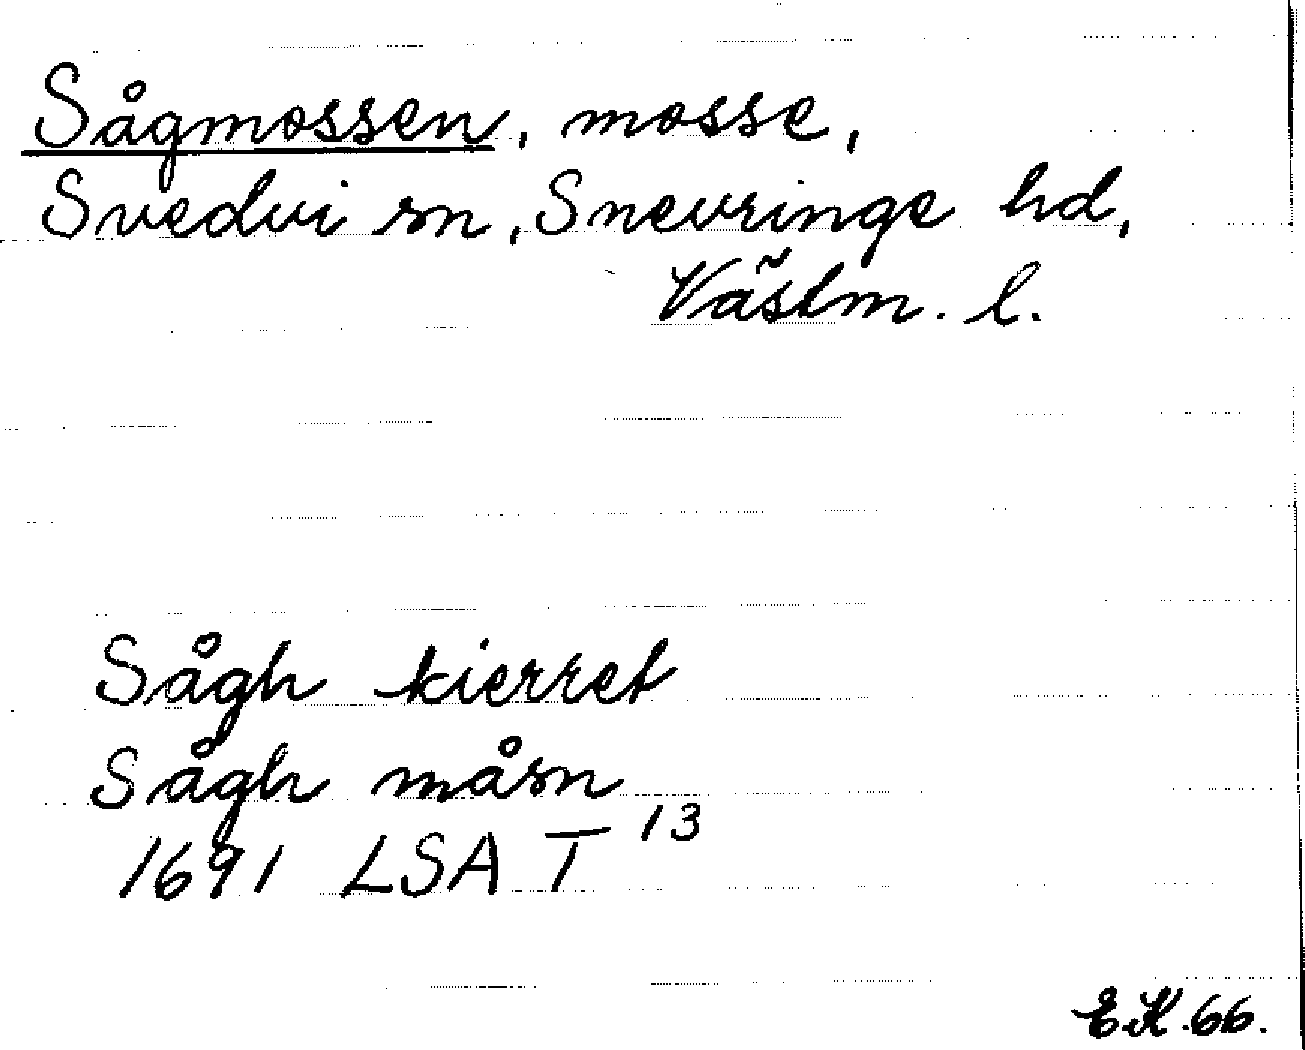 Sågmossen, mosse,
Svedvi sn, Snevringe hd,
Västm. l.
Sågh kierret
Sågh måsn
1691 LSA T 13
E.K. 66.